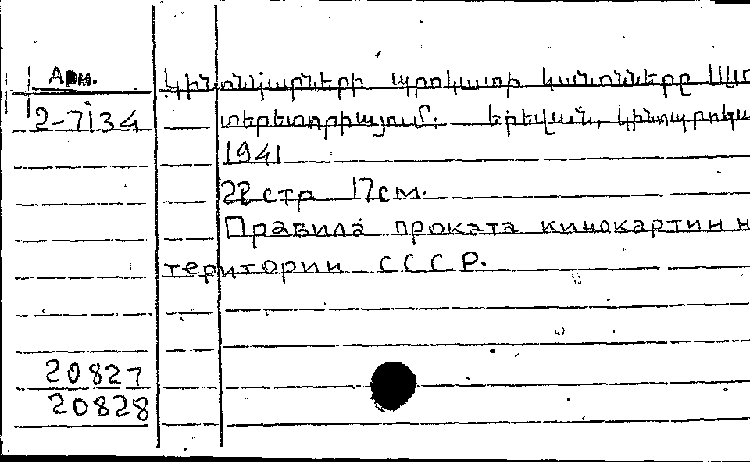 Арм.
Կինոնկարների պրոկատի կանոնները ՍՍՌ
2-7134
տերիտորիայում. Երևան, Կինոպրոկա
1941
22 стр 17см.
Правила проката кинокартин н
територии СССР.
20827
20828